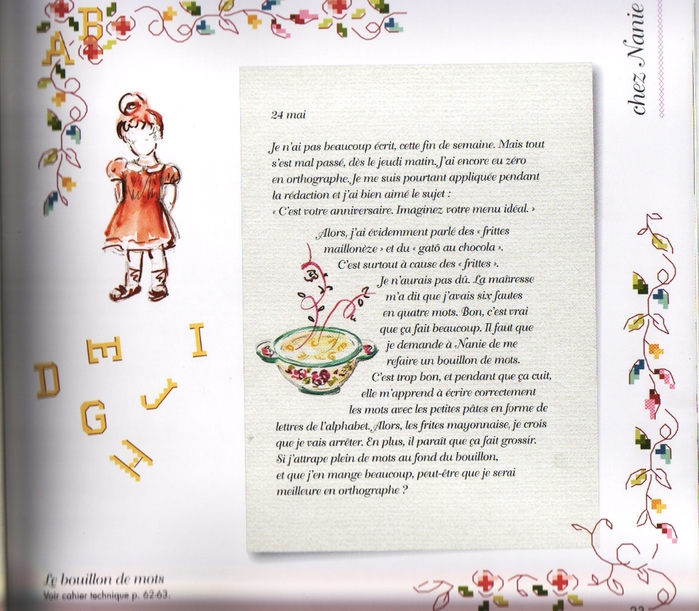 A B
chez Nanie
24 mai
Je n'ai pas beaucoup écrit, cette fin de semaine. Mais tout
s'est mal passé, dès le jeudi matin. J'ai encore eu zéro
en orthographe. Je me suis pourtant appliquée pendant
la rédaction et j'ai bien aimé le sujet :
« C'est votre anniversaire. Imaginez votre menu idéal. »
Alors, j'ai évidemment parlé des « frittes
maillonèze » et du « gatô au chocola ».
C'est surtout à cause des « frittes ».
Je n'aurais pas dû. La maîtresse
m'a dit que j'avais six fautes
en quatre mots. Bon, c'est vrai
que ça fait beaucoup. Il faut que
je demande à Nanie de me
refaire un bouillon de mots.
C'est trop bon, et pendant que ça cuit,
elle m'apprend à écrire correctement
les mots avec les petites pâtes en forme de
lettres de l'alphabet. Alors, les frites mayonnaise, je crois
que je vais arrêter. En plus, il paraît que ça fait grossir.
Si j'attrape plein de mots au fond du bouillon,
et que j'en mange beaucoup, peut-être que je serai
meilleure en orthographe ?
E I
D G J
H
Le bouillon de mots
Voir cahier technique p. 62-63.